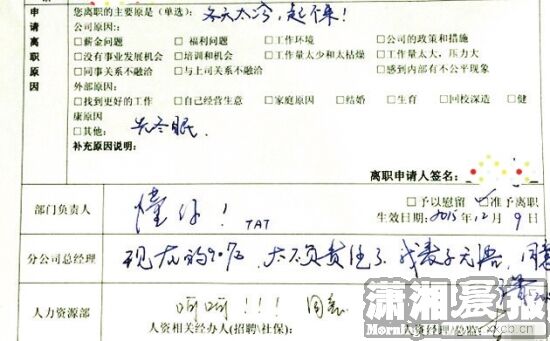 申请离职原因
您离职的主要原是(单选): 冬天太冷,起不来!
公司原因::
□薪金问题 □福利问题 □工作环境 □公司的政策和措施
□没有事业发展机会 □培训和机会 □工作量太少和太枯燥 □工作量太大,压力大
□同事关系不融洽 □与上司关系不融洽 □感到内部有不公平现象
外部原因:
□找到更好的工作 □自己经营生意 □家庭原因 □结婚 □生育 □回校深造 □健
康原因
□其他: 先冬眠.
补充原因说明:
离职申请人签名:
部门负责人 懂你! TAT
□予以慰留 准予离职
生效日期: 2015年12月9日
分公司总经理 现在的90后,太不负责任了 我表示无语,同意
人力资源部 呵呵!!! 同意
潇湘晨报
人资相关经办人(招聘\社保): 人资经理\总监: